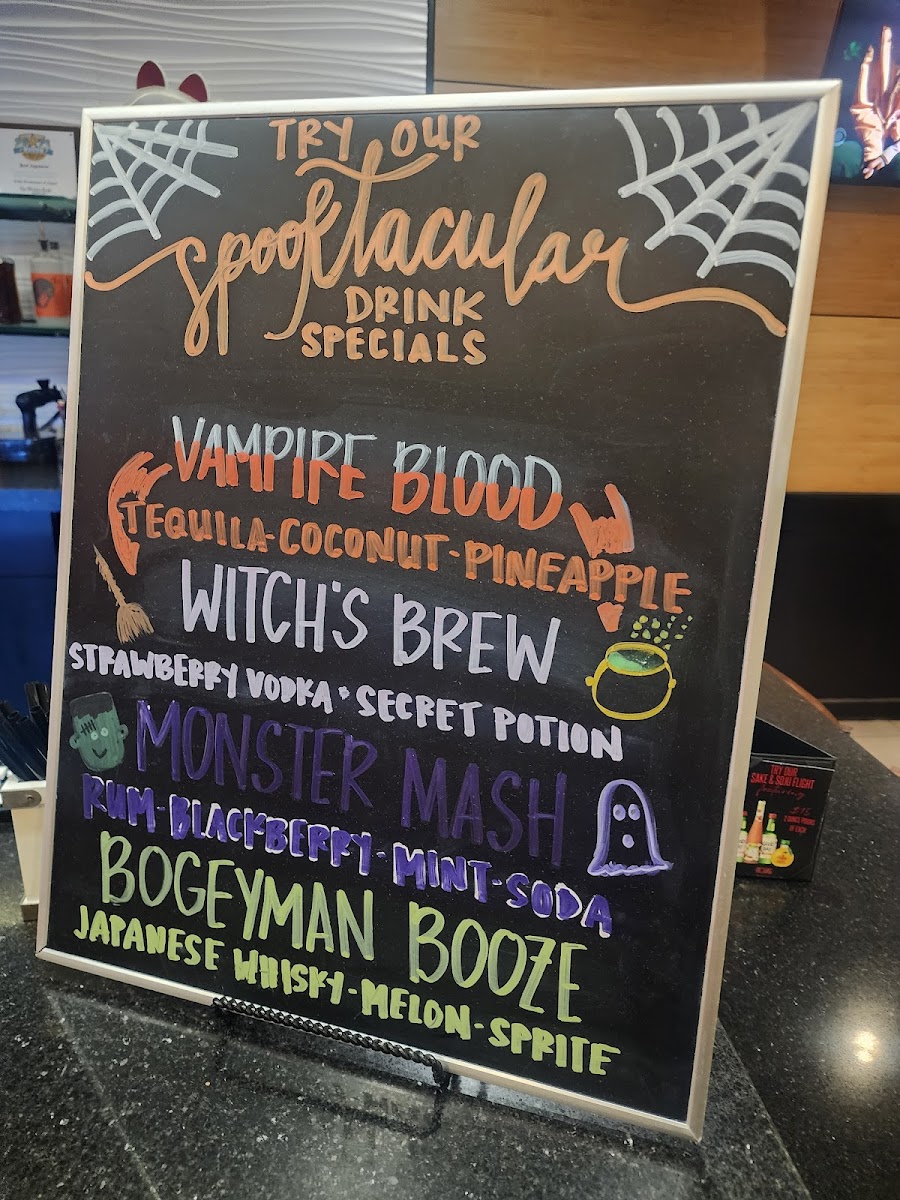 TRY OUR
Spooktacular
DRINK
SPECIALS
VAMPIRE BLOOD
TEQUILA-COCONUT-PINEAPPLE
WITCH'S BREW
STRAWBERRY VODKA • SECRET POTION
MONSTER MASH
RUM-BLACKBERRY-MINT-SODA
BOGEYMAN BOOZE
JAPANESE WHISKY-MELON-SPRITE
TRY OUR
SAKE & SOJU FLIGHT
$15
2 OUNCE POURS
OF EACH